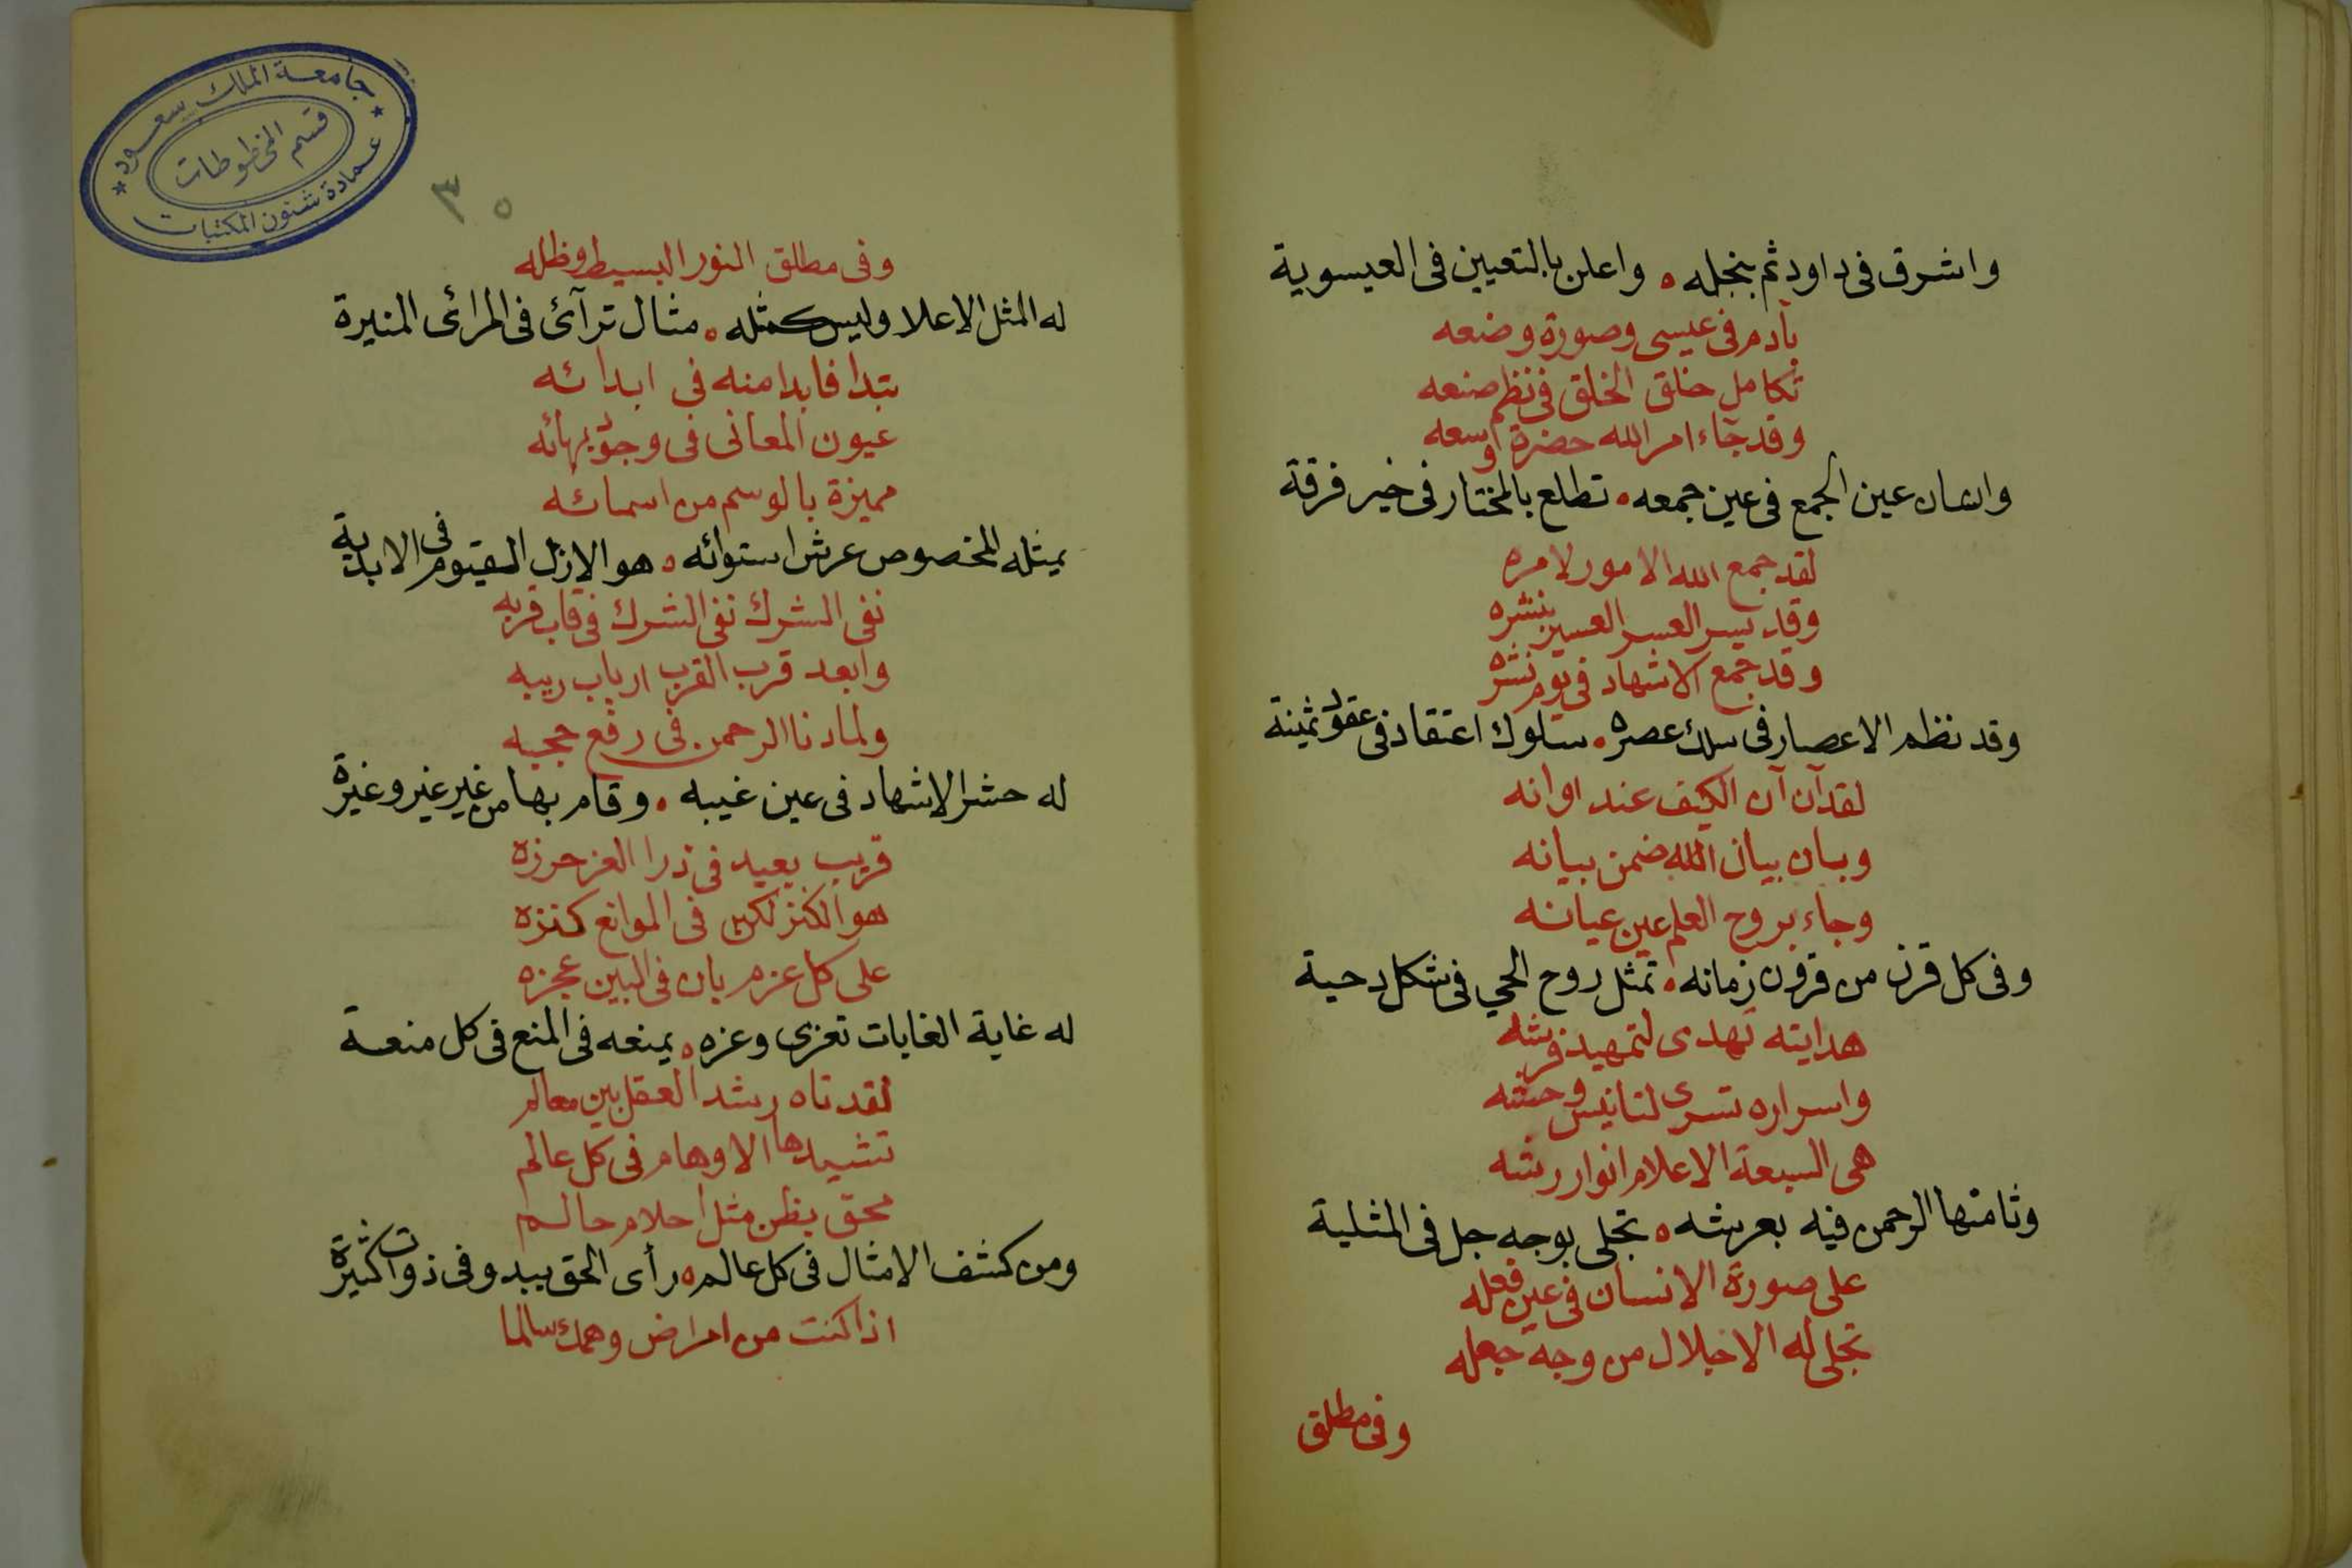 واشرق فى داود ثم بنجله ، واعلن بالتعيين فى العيسوية
بآدم فى عيسى وصورة وضعه
تكامل خلق الخلق فى نظم صنعه
وقد جاء امر الله حضرة اوسعه
وانسان عين الجمع فى عين جمعه ، تطلع بالمختار فى خير فرقة
لقد جمع الله الامور لامره
وقد يسر العسر العسير بنشره
وقد جمع الاشهاد فى يوم نشره
وقد نظم الاعصار فى سلك عصره ، سلوك اعتقاد فى عقود ثمينة
لقد آن آن الكيف عند اوانه
وبان بيان الله ضمن بيانه
وجاء بروح العلم عين عيانه
وفى كل قرن من قرون زمانه ، تمثل روح الحي فى شكل دحية
هدايته تهدى لتمهيد فرشه
واسراره تسرى لتانيس وحشه
هى السبعة الاعلام انوار رشه
وثامنها الرحمن فيه بعرشه ، تجلى بوجه جل فى المثلية
على صورة الانسان فى عين فعله
تجلى له الاجلال من وجه جعله
وفى مطلق
٣٥
جامعة الملك سعود
قسم المخطوطات
عمادة شئون المكتبات
وفى مطلق النور البسيط وظله
له المثل الاعلا وليس كمثله ، مثال ترآئ فى المرائى المنيرة
بتدا فابدا منه فى ابدائه
عيون المعانى فى وجود بهائه
مميزة بالوسم من اسمائه
يمثله المخصوص عرش استوائه ، هو الازلى القيوم فى الابدية
نفى الشرك نفى الشرك فى قاب قربه
وابعد قرب القرب ارباب ريبه
ولما دنا الرحمن فى رفع حجبه
له حشر الاشهاد فى عين غيبه ، وقام بها من غير غير وغيرة
قريب بعيد فى ذرا العز حرزه
هو الكنز لكن فى الموانع كنزه
على كل عزم بان فى البين عجزه
له غاية الغايات تعزى وعزه ، يمنعه فى المنع فى كل منعة
لقد تاه رشد العقل بين معالم
تشيدها الاوهام فى كل عالم
محق يظن مثل احلام حالم
ومن كشف الامثال فى كل عالم ، رأى الحق يبدو فى ذوات كثيرة
اذا كنت من امراض وهمك سالما